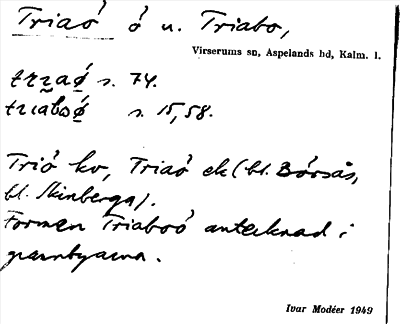 Triaó ó u. Triabo,
Virserums sn, Aspelands hd, Kalm. l.
s. 74.
s. 15, 58.
Trió kv, Triaó ek (bl. Bórsås,
bl. Skinberga).
Formen Triaboó antecknad i
grannbyarna.
Ivar Modéer 1949